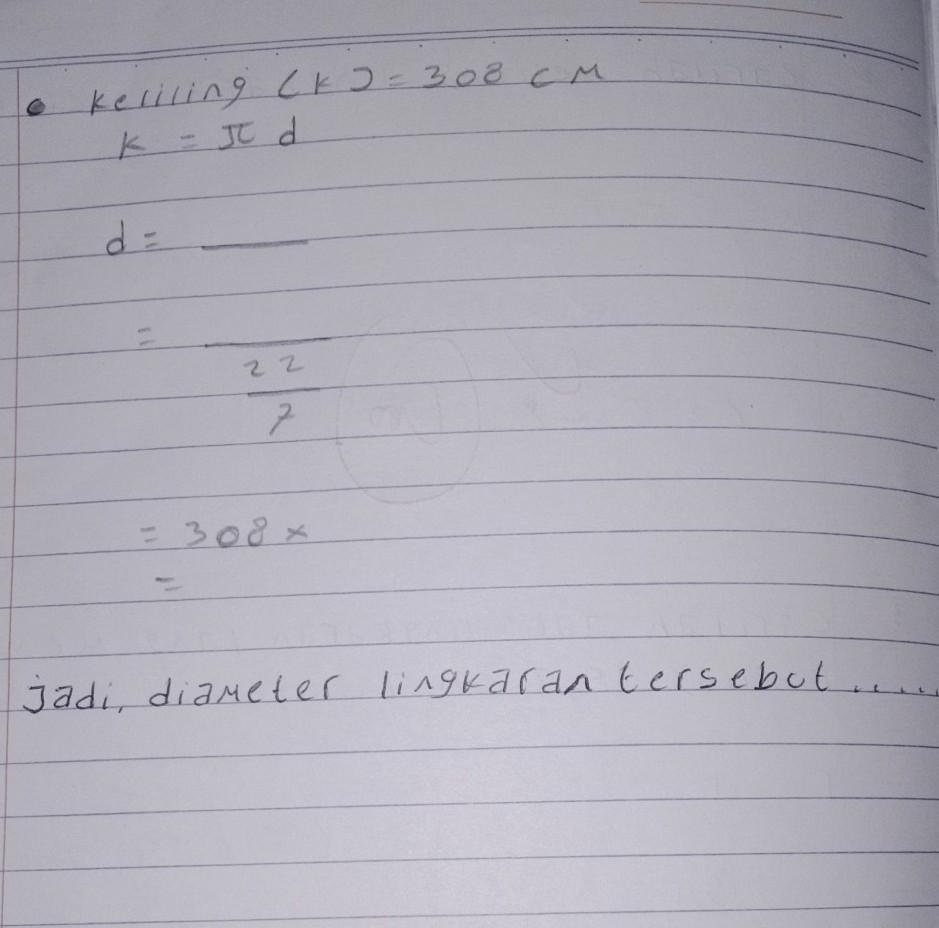 • Keliling (K) = 308 cm
K = π d
d = ___
= ___
22
7
= 308 x
=
jadi, diameter lingkaran tersebut .....